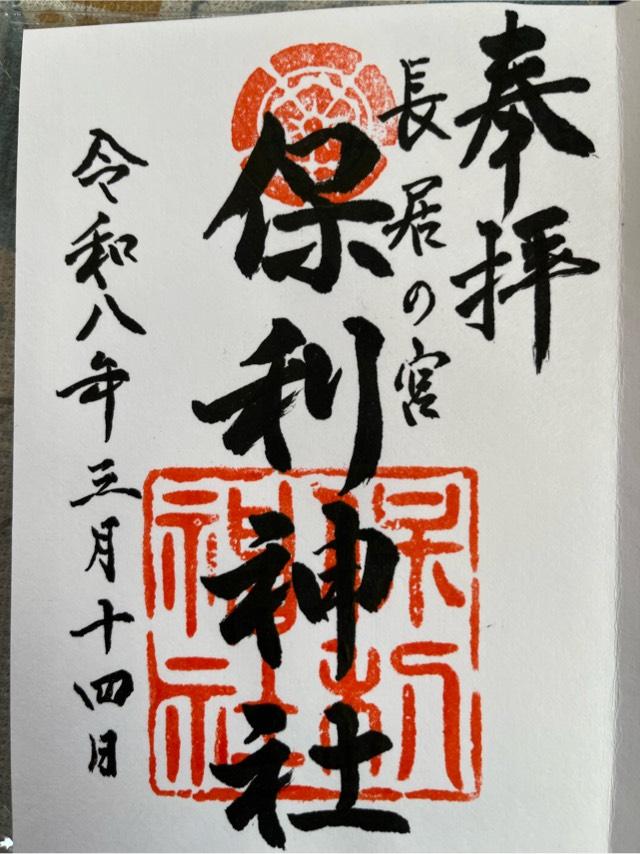 奉拝
長居の宮
保利神社
保利神社
令和八年三月十四日